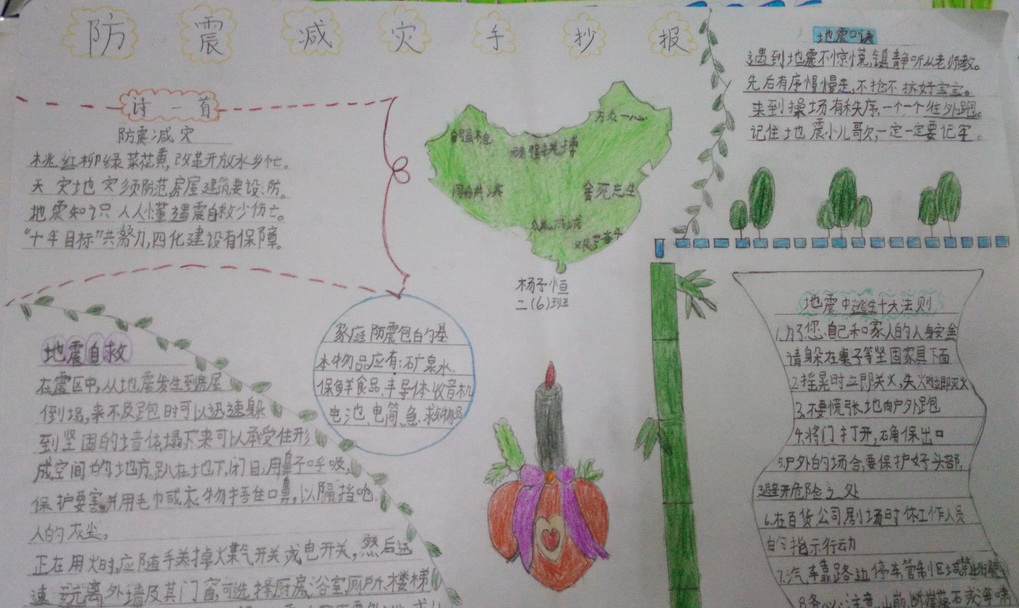 防震减灾手抄报
诗一首
防震减灾
桃红柳绿菜花黄,改革开放水乡忙。
天灾地灾须防范,房屋建筑要设防。
地震知识人人懂,遇震自救少伤亡。
“十年目标”共努力,四化建设有保障。
万众一心
舍死忘生
杨子恒
二(6)班
地震口诀
遇到地震不惊慌,镇静听从老师教。
先后有序慢慢走,不抢不挤好宝宝。
来到操场有秩序,一个一个往外跑。
记住地震小儿歌,一定一定要记牢。
家庭防震包的基
本物品应有:矿泉水、
保鲜食品,半导体收音机
电池、电筒、急救物品
地震自救
在震区中,从地震发生到房屋
倒塌,来不及跑时可以迅速躲
到坚固的
下来可以承受住形
成空间的地方,趴在地下,闭目,用鼻子呼吸,
保护要害并用毛巾或衣物捂住口鼻,以隔挡呛
人的灰尘。
正在用火时,应随手关掉火煤气开关或电开关,然后迅
速远离外墙及其门窗,可选择厨房、浴室、厕所、楼梯
地震中逃生十大法则
1.为了您自己和家人的人身安全
请躲在桌子等坚固家具下面
2.摇晃时立即关火,失火时立即灭火
3.不要慌张地向户外跑
4.将门打开,确保出口
5.户外的场合,要保护好头部,
避开危险之处
6.在百货公司剧场时依工作人员
的指示行动
7.汽车靠路边停车,管制区域禁止行驶